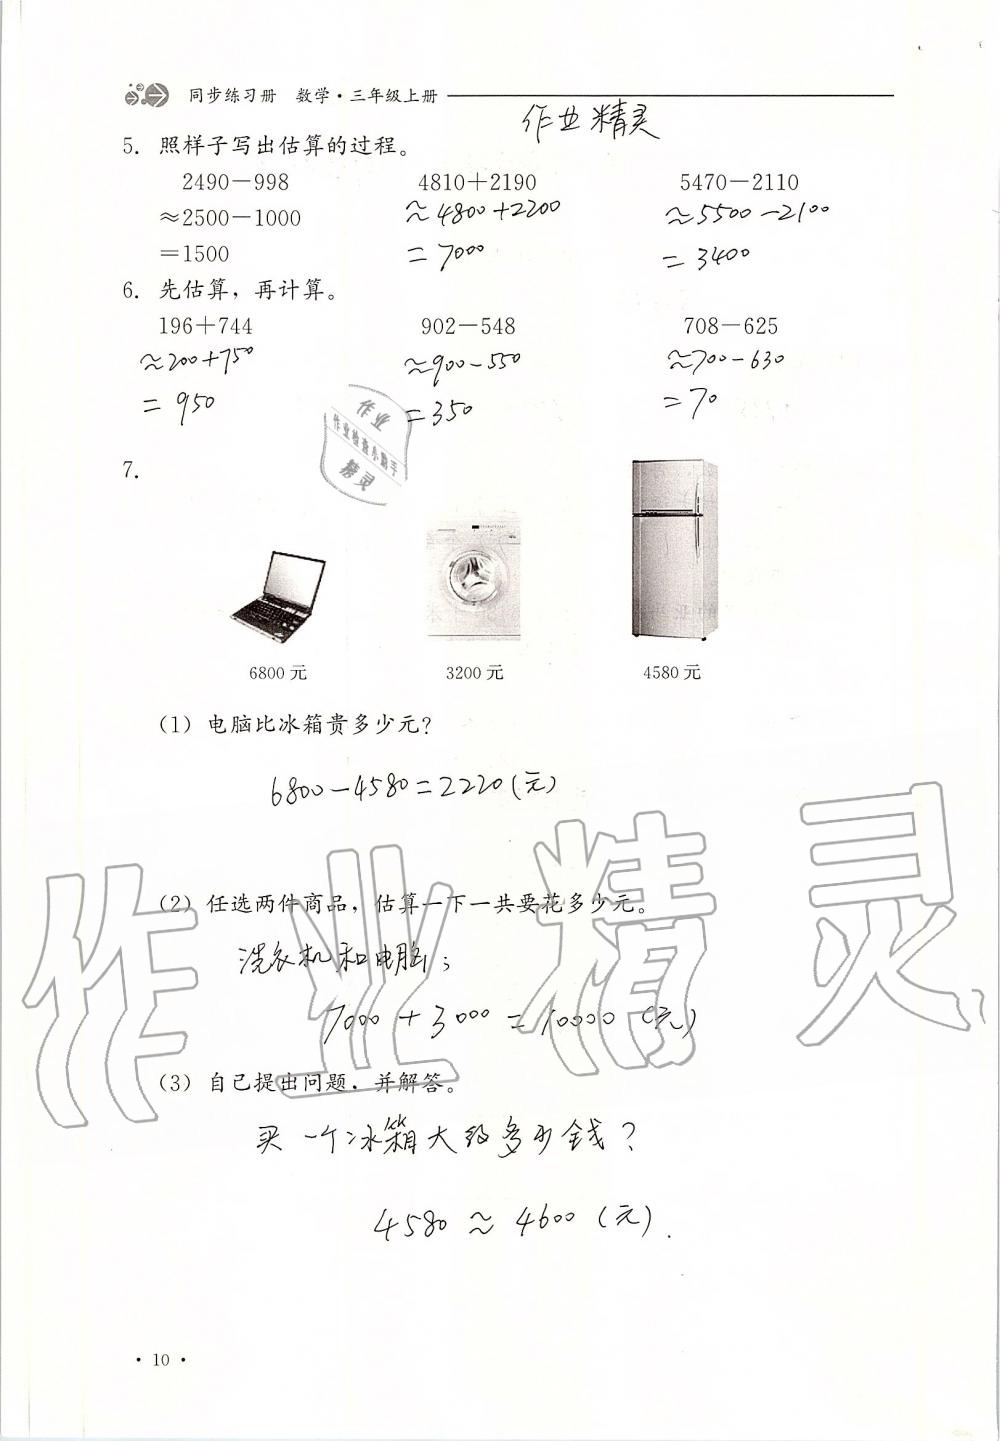 同步练习册 数学·三年级上册
作业精灵
5. 照样子写出估算的过程。
2490－998 4810＋2190 5470－2110
≈2500－1000 ≈4800+2200 ≈5500-2100
＝1500 =7000 =3400
6. 先估算，再计算。
196＋744 902－548 708－625
≈200+750 ≈900-550 ≈700-630
=950 =350 =70
作业
作业检查小助手
精灵
7.
6800 元 3200 元 4580 元
（1）电脑比冰箱贵多少元？
6800-4580=2220(元)
（2）任选两件商品，估算一下一共要花多少元。
洗衣机和电脑;
7000+3000=10000(元)
作业精灵
（3）自己提出问题，并解答。
买一个冰箱大约多少钱?
4580≈4600(元).
·10·